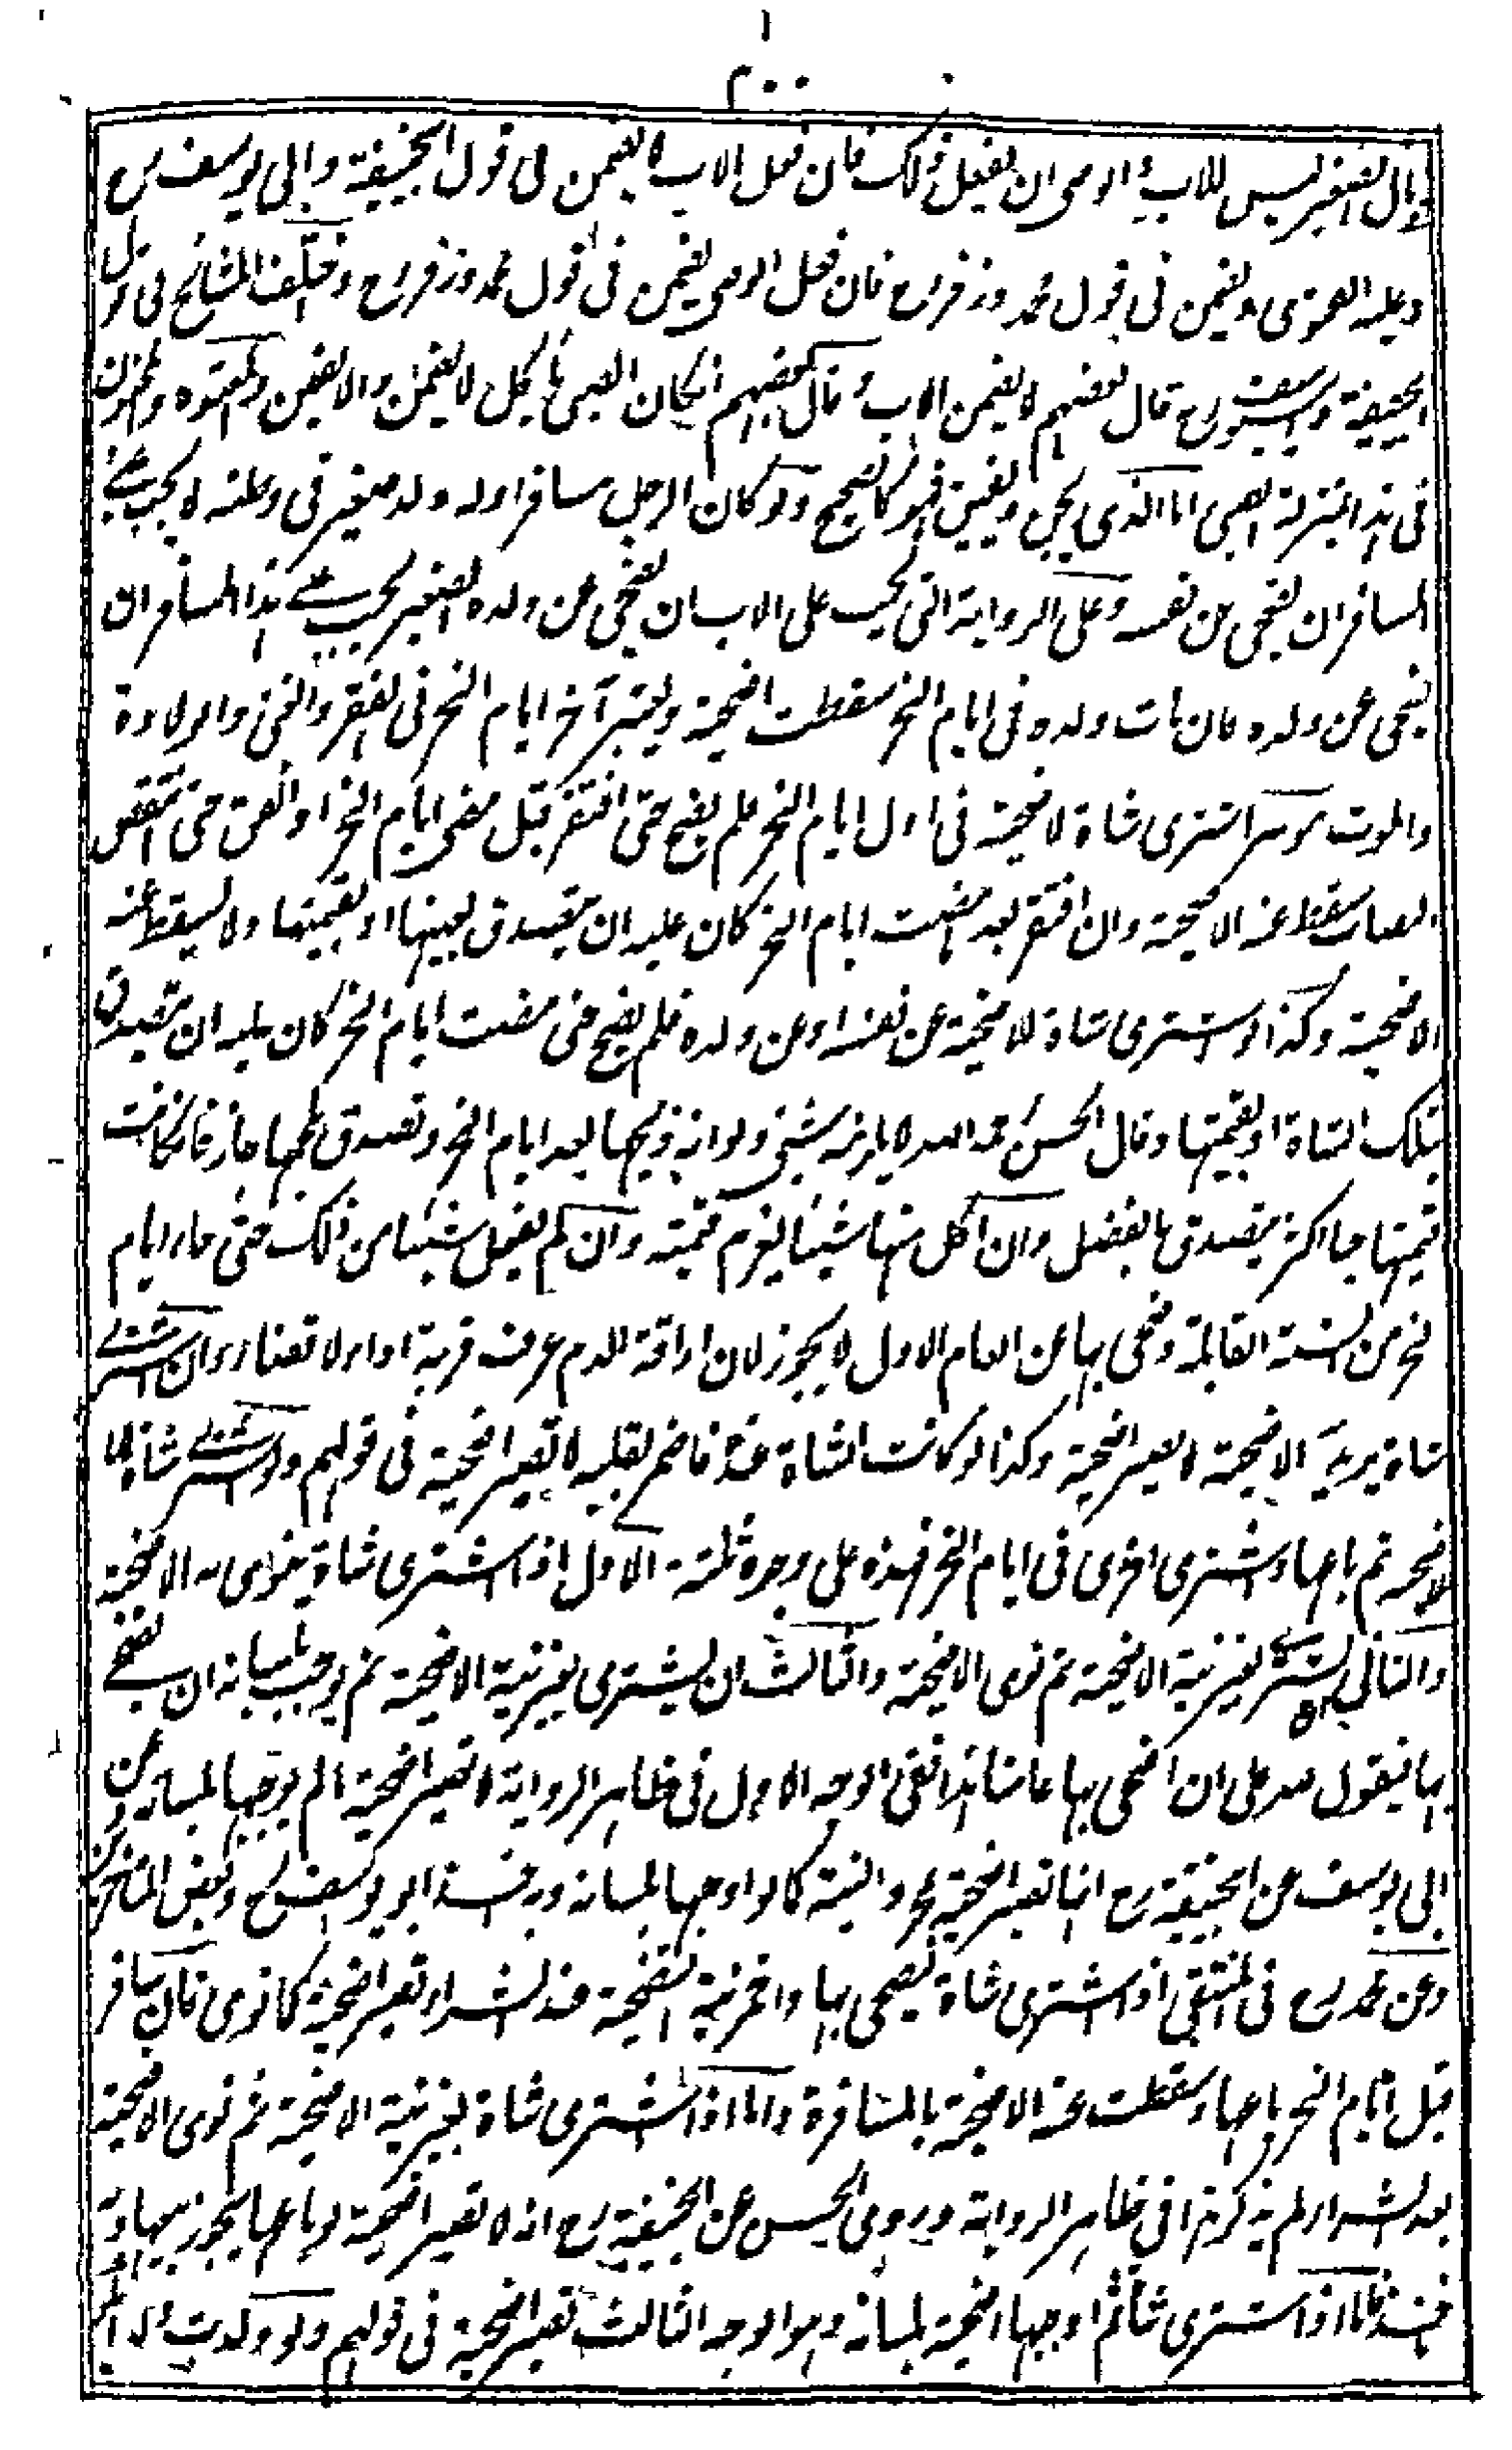 ٢٠٠
مال الصغير ليس للاب والوصى ان يفعل ذلك فان فعل الاب لا يضمن فى قول ابحنيفة وابى يوسف رح
وعليه الفتوى ويضمن فى قول محمد وزفر رح فان فعل الوصى يضمن فى قول محمد وزفر رح واختلف المشائخ فى قول
ابحنيفة وابى يوسف رح قال بعضهم لا يضمن كالاب وقال بعضهم انكان الصبى ياكل لا يضمن والا يضمن والمعتوه والمجنون
فى هذا بمنزلة الصبى اما الذى يجن ويفيق فهو كالصحيح ولو كان الرجل مسافرا وله ولد صغير فى وطنه لا يجب على
المسافر ان يضحى عن نفسه وعلى الرواية التى يجب على الاب ان يضحى عن ولده الصغير يجب على هذا المسافر ان
يضحى عن ولده فان مات ولده فى ايام النحر سقطت اضحيته ويعتبر آخر ايام النحر فى الفقر والغنى والولادة
والموت موسر اشترى شاة لاضحية فى اول ايام النحر فلم يضح حتى افتقر قبل مضى ايام النحر او انفق حتى انتقص
النصاب سقط عنه الاضحية وان افتقر بعد مضت ايام النحر كان عليه ان يتصدق بعينها او بقيمتها ولا يسقط عنه
الاضحية وكذا لو اشترى شاة للاضحية عن نفسه او عن ولده فلم يضح حتى مضت ايام النحر كان عليه ان يتصدق
بتلك الشاة او بقيمتها وقال الحسن رحمه الله لا يلزمه شئ ولو انه ذبحها بعد ايام النحر وتصدق بلحمها جاز فان كانت
قيمتها حيا اكثر يتصدق بالفضل وان اكل منها شيئا يغرم قيمته وان لم يفعل شيئا من ذلك حتى جاء ايام
النحر من السنة القابلة وضحى بها عن العام الاول لا يجوز لان اراقة الدم عرفت قربة اداء لا قضاء وان اشترى
شاة يريد الاضحية لا يصير اضحية وكذا لو كانت الشاة عنده فاضمر بقلبه لا تصير اضحية فى قولهم ولو اشترى شاة
لاضحية ثم باعها واشترى اخرى فى ايام النحر فهذه على وجوه ثلثة الاول اذا اشترى شاة ينوى به الاضحية
والثانى ان يشترى بغير نية الاضحية ثم نوى الاضحية والثالث ان يشترى بغير نية الاضحية ثم يوجب بلسانه ان يضحى
بها فيقول لله على ان اضحى بها عامنا هذا ففى الوجه الاول فى ظاهر الرواية لا تصير اضحية ما لم يوجبها بلسانه وعن
ابى يوسف عن ابحنيفة رح انها تصير اضحية بمجرد النية كما لو اوجبها بلسانه وبه اخذ ابو يوسف رح وبعض المتاخرين
وعن محمد رح فى المنتقى اذا اشترى شاة ليضحى بها واضمر نية التضحية عند الشراء تصير اضحية كما نوى فان سافر
قبل ايام النحر باعها وسقطت عنه الاضحية بالمسافرة واما اذا اشترى شاة بغير نية الاضحية ثم نوى الاضحية
بعد الشراء لم يذكر هذا فى ظاهر الرواية وروى الحسن عن ابحنيفة رح انه لا تصير اضحية لو باعها يجوز بيعها وبه
ناخذ فاما اذا اشترى شاة ثم اوجبها اضحية بلسانه وهو الوجه الثالث تصير اضحية فى قولهم ولو ولدت